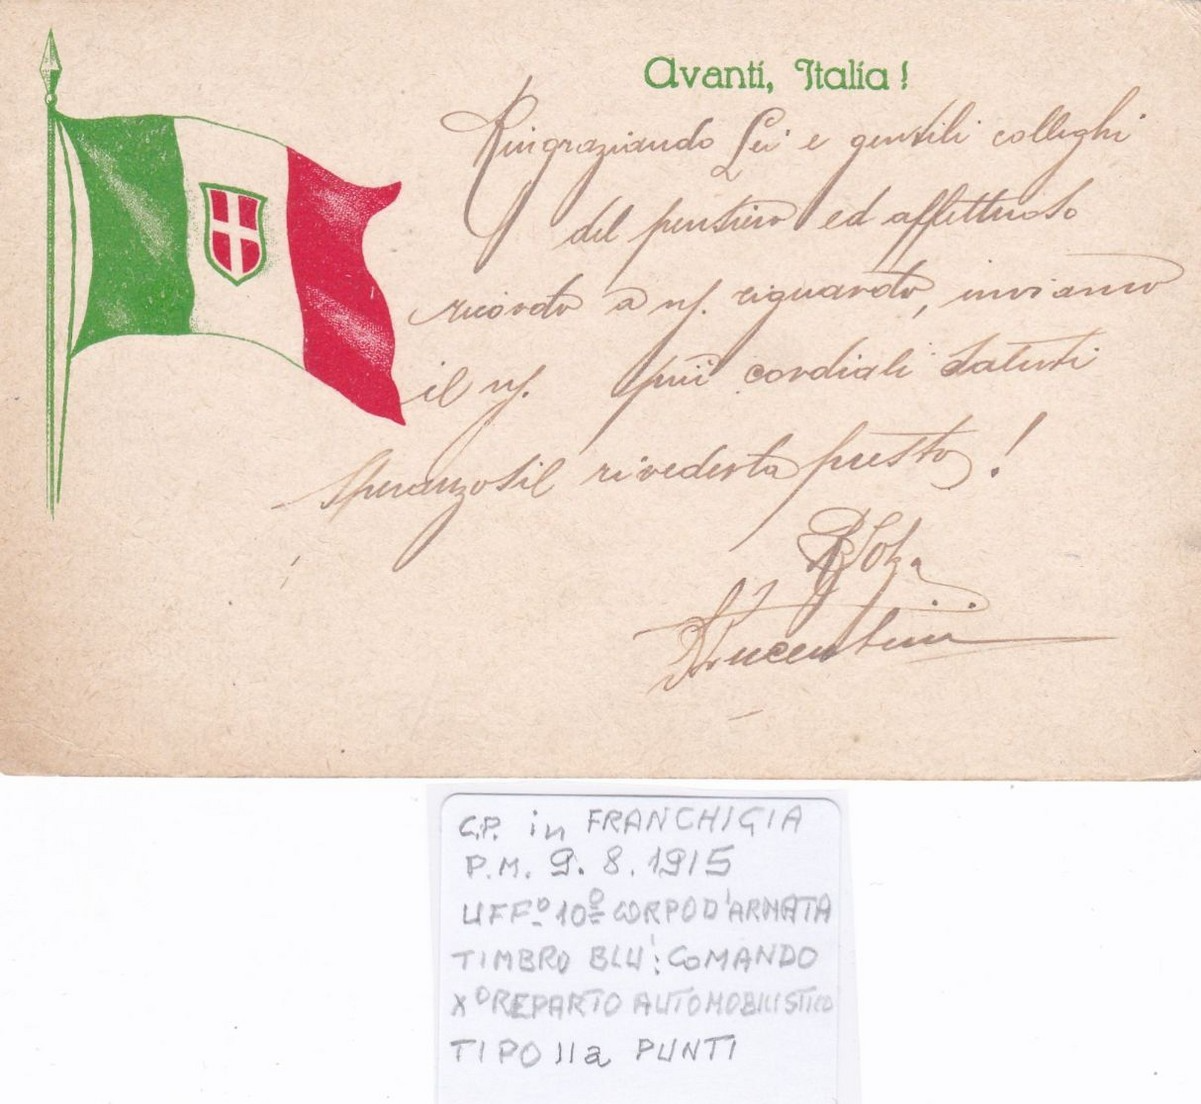 Avanti, Italia!
Ringraziando Lei e gentili colleghi
del pensiero ed affettuoso
ricordo a ns. riguardo, inviamo
il ns. più cordiali saluti
rivederla presto!
C.P. in FRANCHIGIA
P.M. 9. 8. 1915
UFFº 10º CORPO D'ARMATA
TIMBRO BLU': COMANDO
Xº REPARTO AUTOMOBILISTICO
TIPO 11a PUNTI